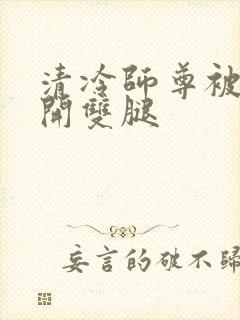 清冷師尊被
開雙腿
妄言的破不歸